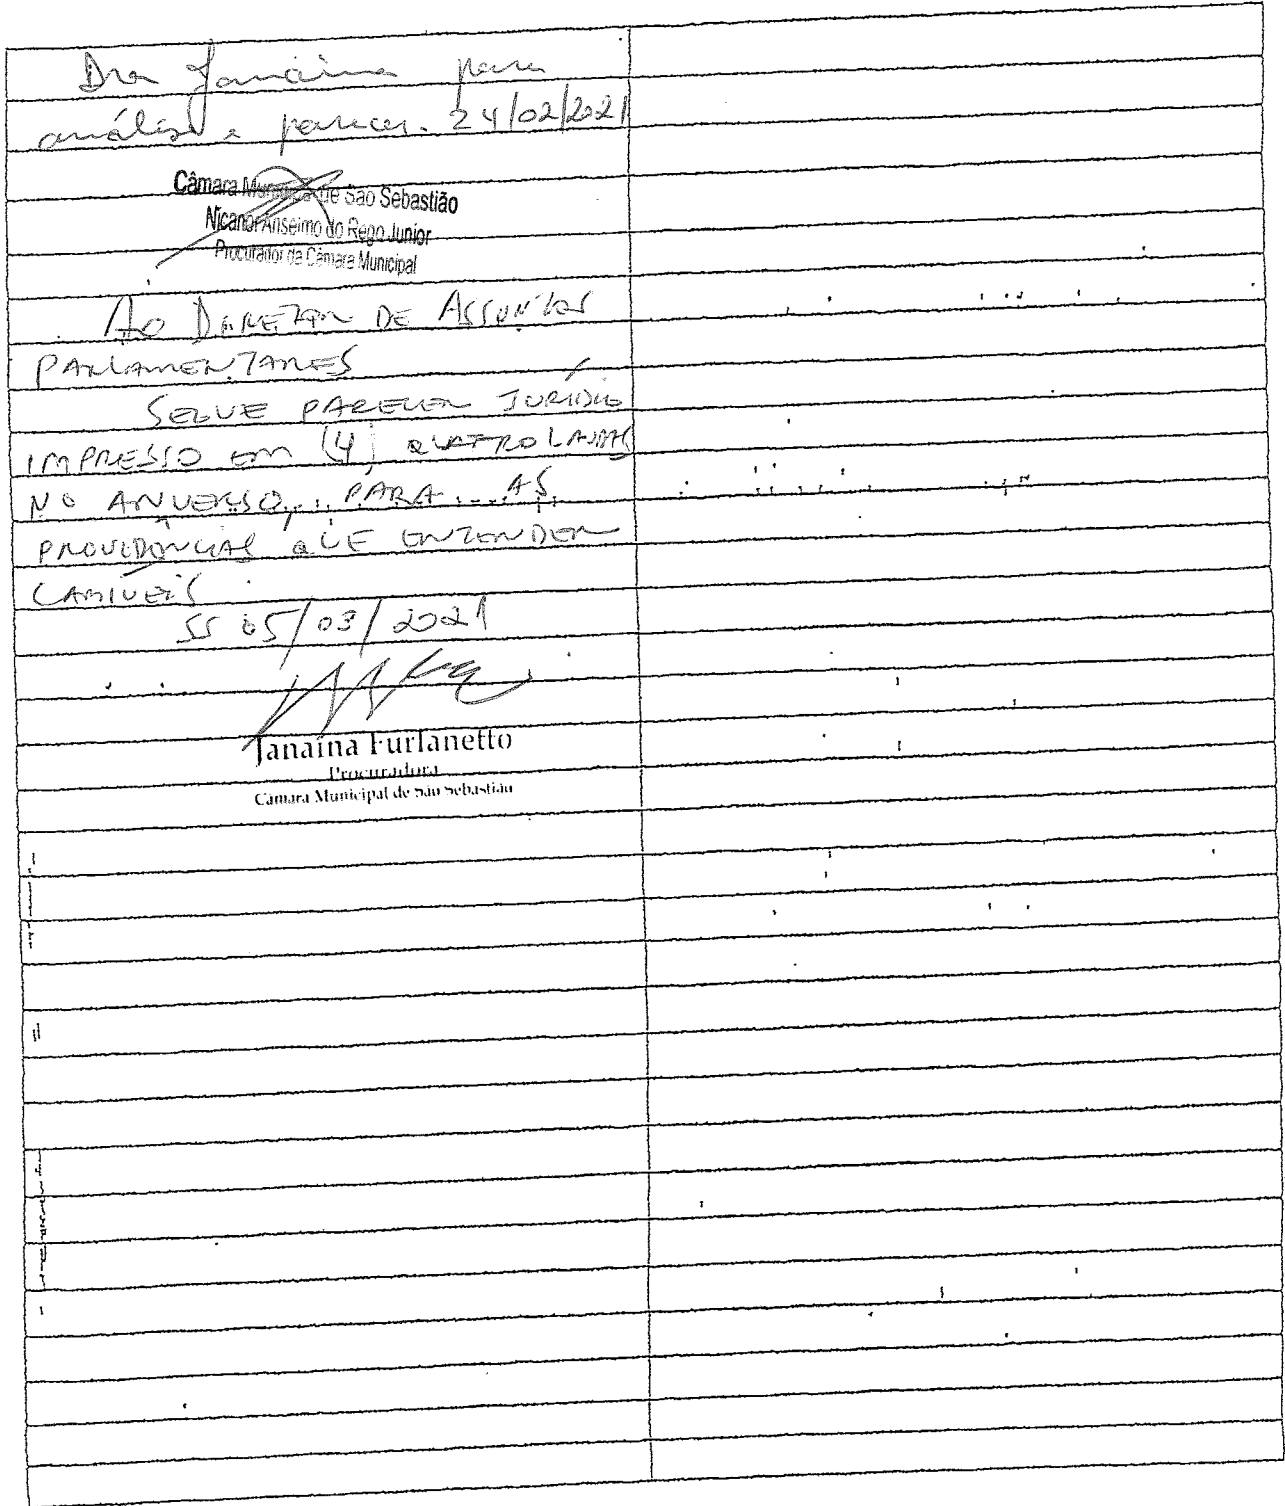 Dra Janaina para
análise e parecer. 24/02/2021
Câmara Municipal de São Sebastião
Nicanor Anselmo do Rego Junior
Procurador da Câmara Municipal
Ao DIRETOR DE ASSUNTOS
PARLAMENTARES
SEGUE PARECER JURÍDICO
IMPRESSO em (4) QUATRO LAUDAS
NO ANVERSO, PARA AS
PROVIDÊNCIAS QUE ENTENDER
CABÍVEIS
SS 05/03/2021
Janaína Furlanetto
Procuradora
Câmara Municipal de São Sebastião